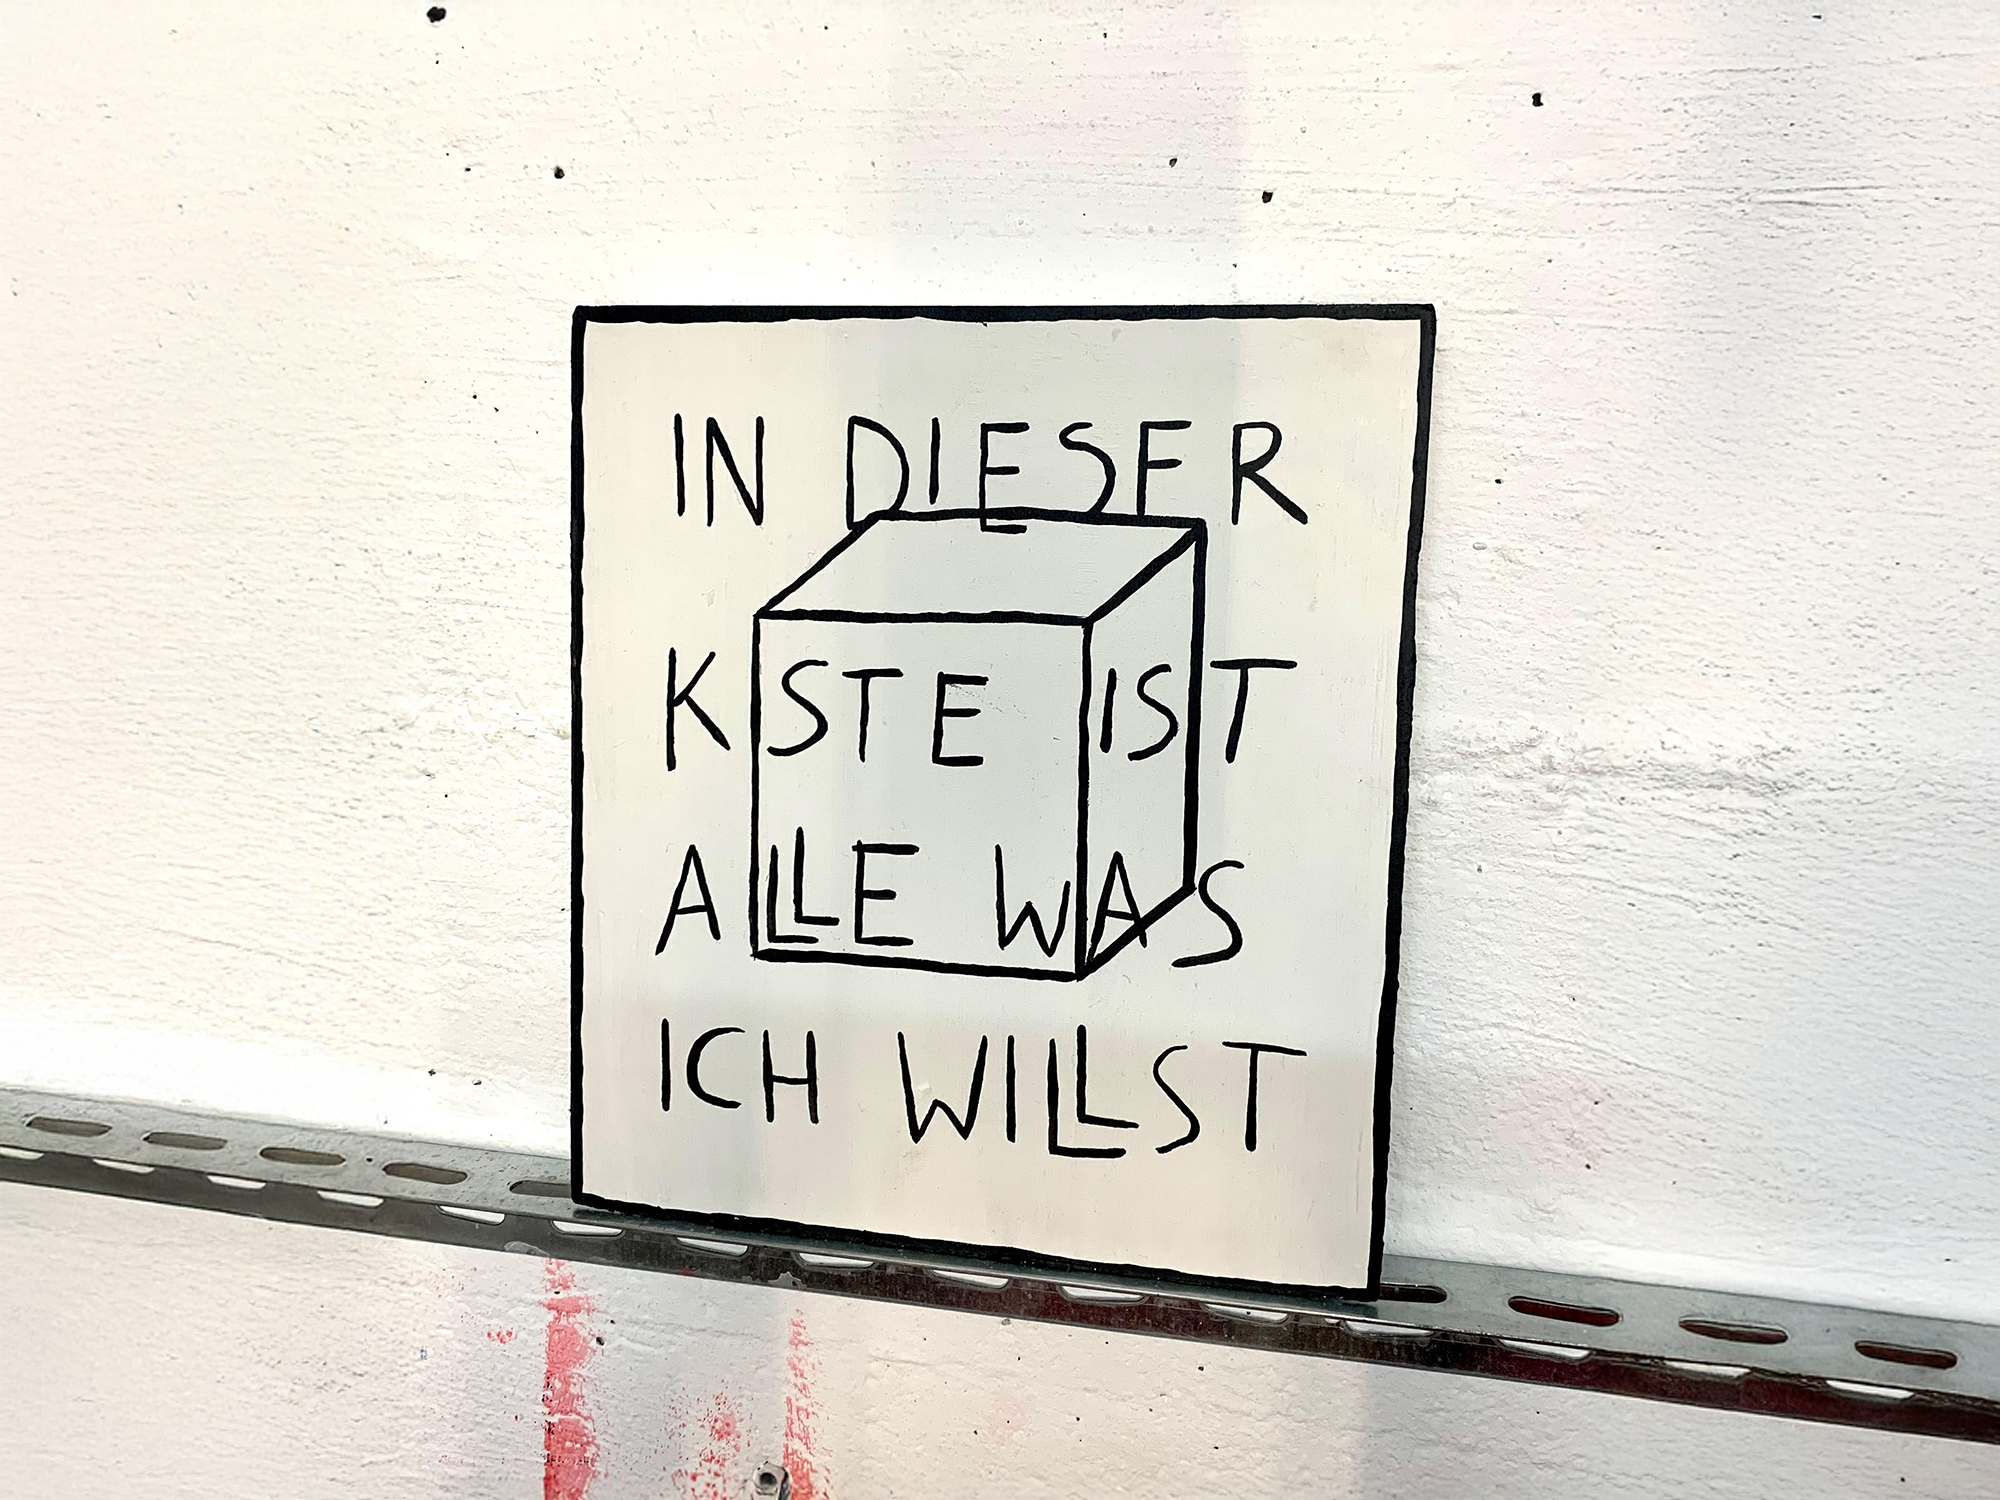 IN DIESER
KSTE IST
ALLE WAS
ICH WILLST